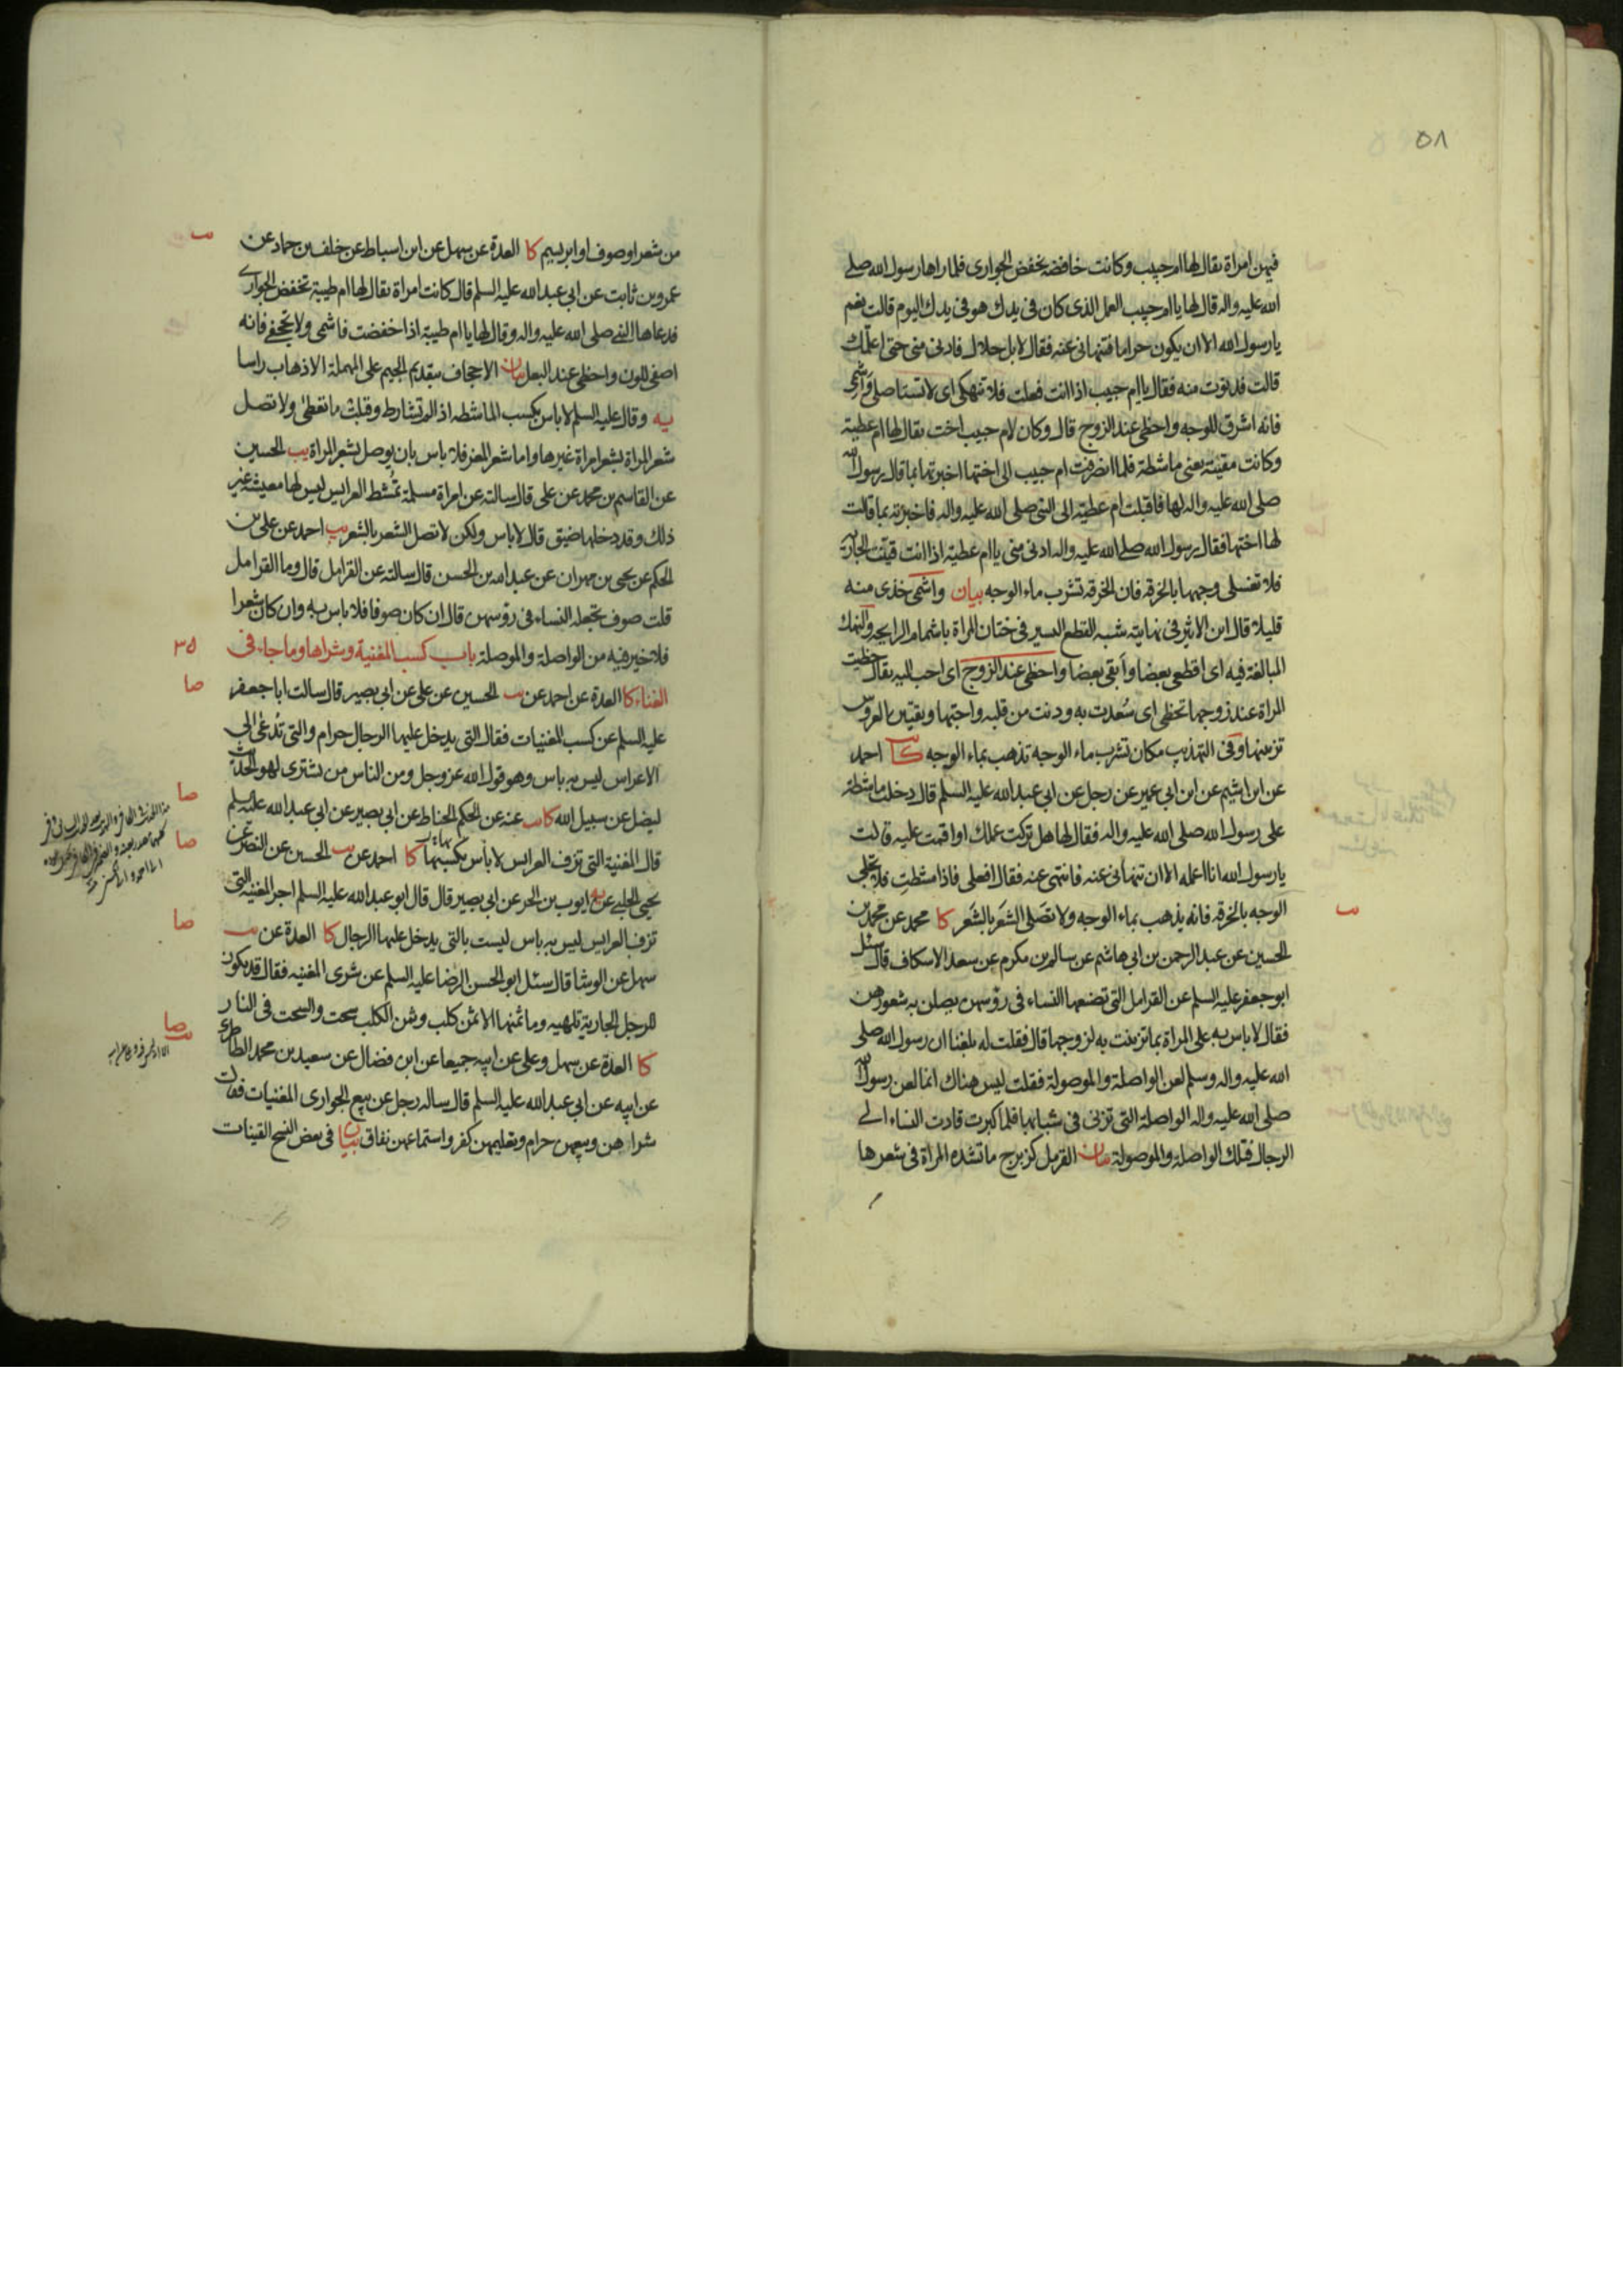 ٥٨
فيهن امراة يقال لها ام حبيب وكانت خافضة تخفض الجوارى فلما راها رسول الله صلى
الله عليه واله قال لها يا ام حبيب العمل الذى كان فى يدك هو فى يدك اليوم قالت نعم
يا رسول الله الا ان يكون حراما فتنهانى عنه فقال لا بل حلال فادنى منى حتى اعلمك
قالت فدنوت منه فقال يا ام حبيب اذا انت فعلت فلا تنهكى اى لا تستاصلى واشمى
فانه اشرق للوجه واحظى عند الزوج قال وكان لام حبيب اخت يقال لها ام عطية
وكانت مقينة يعنى ماشطة فلما انصرفت ام حبيب الى اختها اخبرتها بما قال رسول الله
صلى الله عليه واله لها فاقبلت ام عطية الى النبى صلى الله عليه واله فاخبرته بما قالت
لها اختها فقال رسول الله صلى الله عليه واله ادنى منى يا ام عطية اذا انت قينت الجارية
فلا تغسلى وجهها بالخرقة فان الخرقة تشرب ماء الوجه بيان واشمى خذى منه
قليلا قال ابن الاثير فى نهايته شبه القطع اليسير فى ختان المراة باشمام الرايحة والنهك
المبالغة فيه اى اقطعى بعضا وابقى بعضا واحظى عند الزوج اى احب اليه يقال حظيت
المراة عند زوجها تحظى اى سعدت به ودنت من قلبه واحبها وتقيين العروس
تزيينها وفى التهذيب مكان تشرب ماء الوجه تذهب بماء الوجه كا يب احمد
عن ابن اشيم عن ابن ابى عمير عن رجل عن ابى عبد الله عليه السلم قال دخلت ماشطة
على رسول الله صلى الله عليه واله فقال لها هل تركت عملك او اقمت عليه قالت
يا رسول الله انا اعمله الا ان تنهانى عنه فانتهى عنه فقال افعلى فاذا مشطت فلا تجلى
الوجه بالخرقة فانه يذهب بماء الوجه ولا تصلى الشعر بالشعر كا محمد عن محمد بن
الحسين عن عبد الرحمن بن ابى هاشم عن سالم بن مكرم عن سعد الاسكاف قال سئل
ابو جعفر عليه السلم عن القرامل التى تضعها النساء فى رؤسهن يصلن به شعورهن
فقال لا باس به على المراة بما تزينت به لزوجها قال فقلت له بلغنا ان رسول الله صلى
الله عليه واله وسلم لعن الواصلة والموصولة فقلت ليس هناك انما لعن رسول الله
صلى الله عليه واله الواصلة التى تزنى فى شبابها فلما كبرت قادت النساء الى
الرجال فتلك الواصلة والموصولة بيان القرمل كزبرج ما تشده المراة فى شعرها
من شعر او صوف او ابريسم كا العدة عن سهل عن ابن اسباط عن خلف بن حماد عن
عمرو بن ثابت عن ابى عبد الله عليه السلم قال كانت امراة يقال لها ام طيبة تخفض الجوارى
فدعاها النبى صلى الله عليه واله وقال لها يا ام طيبة اذا خفضت فاشمى ولا تجحفى فانه
اصفى للون واحظى عند البعل بيان الاجحاف بتقديم الجيم على المهملة الاذهاب راسا
يه وقال عليه السلم لا باس بكسب الماشطة اذا لم تشارط وقبلت ما تعطى ولا تصل
شعر المراة بشعر امراة غيرها واما شعر المعز فلا باس بان يوصل بشعر المراة يب الحسين
عن القاسم بن محمد عن على قال سالته عن امراة مسلمة تمشط العرايس ليس لها معيشة غير
ذلك وقد دخلها ضيق قال لا باس ولكن لا تصل الشعر بالشعر يب احمد عن على بن
الحكم عن يحيى بن مهران عن عبد الله بن الحسن قال سالته عن القرامل قال وما القرامل
قلت صوف تجعله النساء فى رؤسهن قال ان كان صوفا فلا باس به وان كان شعرا
فلا خير فيه من الواصلة والموصلة باب كسب المغنية وشراها وما جاء فى
٣٥
الغناء كا العدة عن احمد عن يب الحسين عن على عن ابى بصير قال سالت ابا جعفر
صا
عليه السلم عن كسب المغنيات فقال التى يدخل عليها الرجال حرام والتى تدعى الى
الاعراس ليس به باس وهو قول الله عز وجل ومن الناس من يشترى لهو الحديث
ليضل عن سبيل الله كا يب عنه عن الحكم الحناط عن ابى بصير عن ابى عبد الله عليه السلم
صا
قال المغنية التى تزف العرايس لا باس بكسبها كا احمد عن يب الحسين عن النضر عن
صا
يحيى الحلبى عن يه ايوب بن الحر عن ابى بصير قال قال ابو عبد الله عليه السلم اجر المغنية التى
تزف العرايس ليس به باس ليست بالتى يدخل عليها الرجال كا العدة عن يب
صا
سهل عن الوشا قال سئل ابو الحسن الرضا عليه السلم عن شرى المغنية فقال قد يكون
للرجل الجارية تلهيه وما ثمنها الا ثمن كلب وثمن الكلب سحت والسحت فى النار
كا العدة عن سهل وعلى عن ابيه جميعا عن ابن فضال عن سعيد بن محمد الطاطرى
صا
عن ابيه عن ابى عبد الله عليه السلم قال ساله رجل عن بيع الجوارى المغنيات فقال
شراهن وبيعهن حرام وتعليمهن كفر واستماعهن نفاق بيان فى بعض النسخ القينات